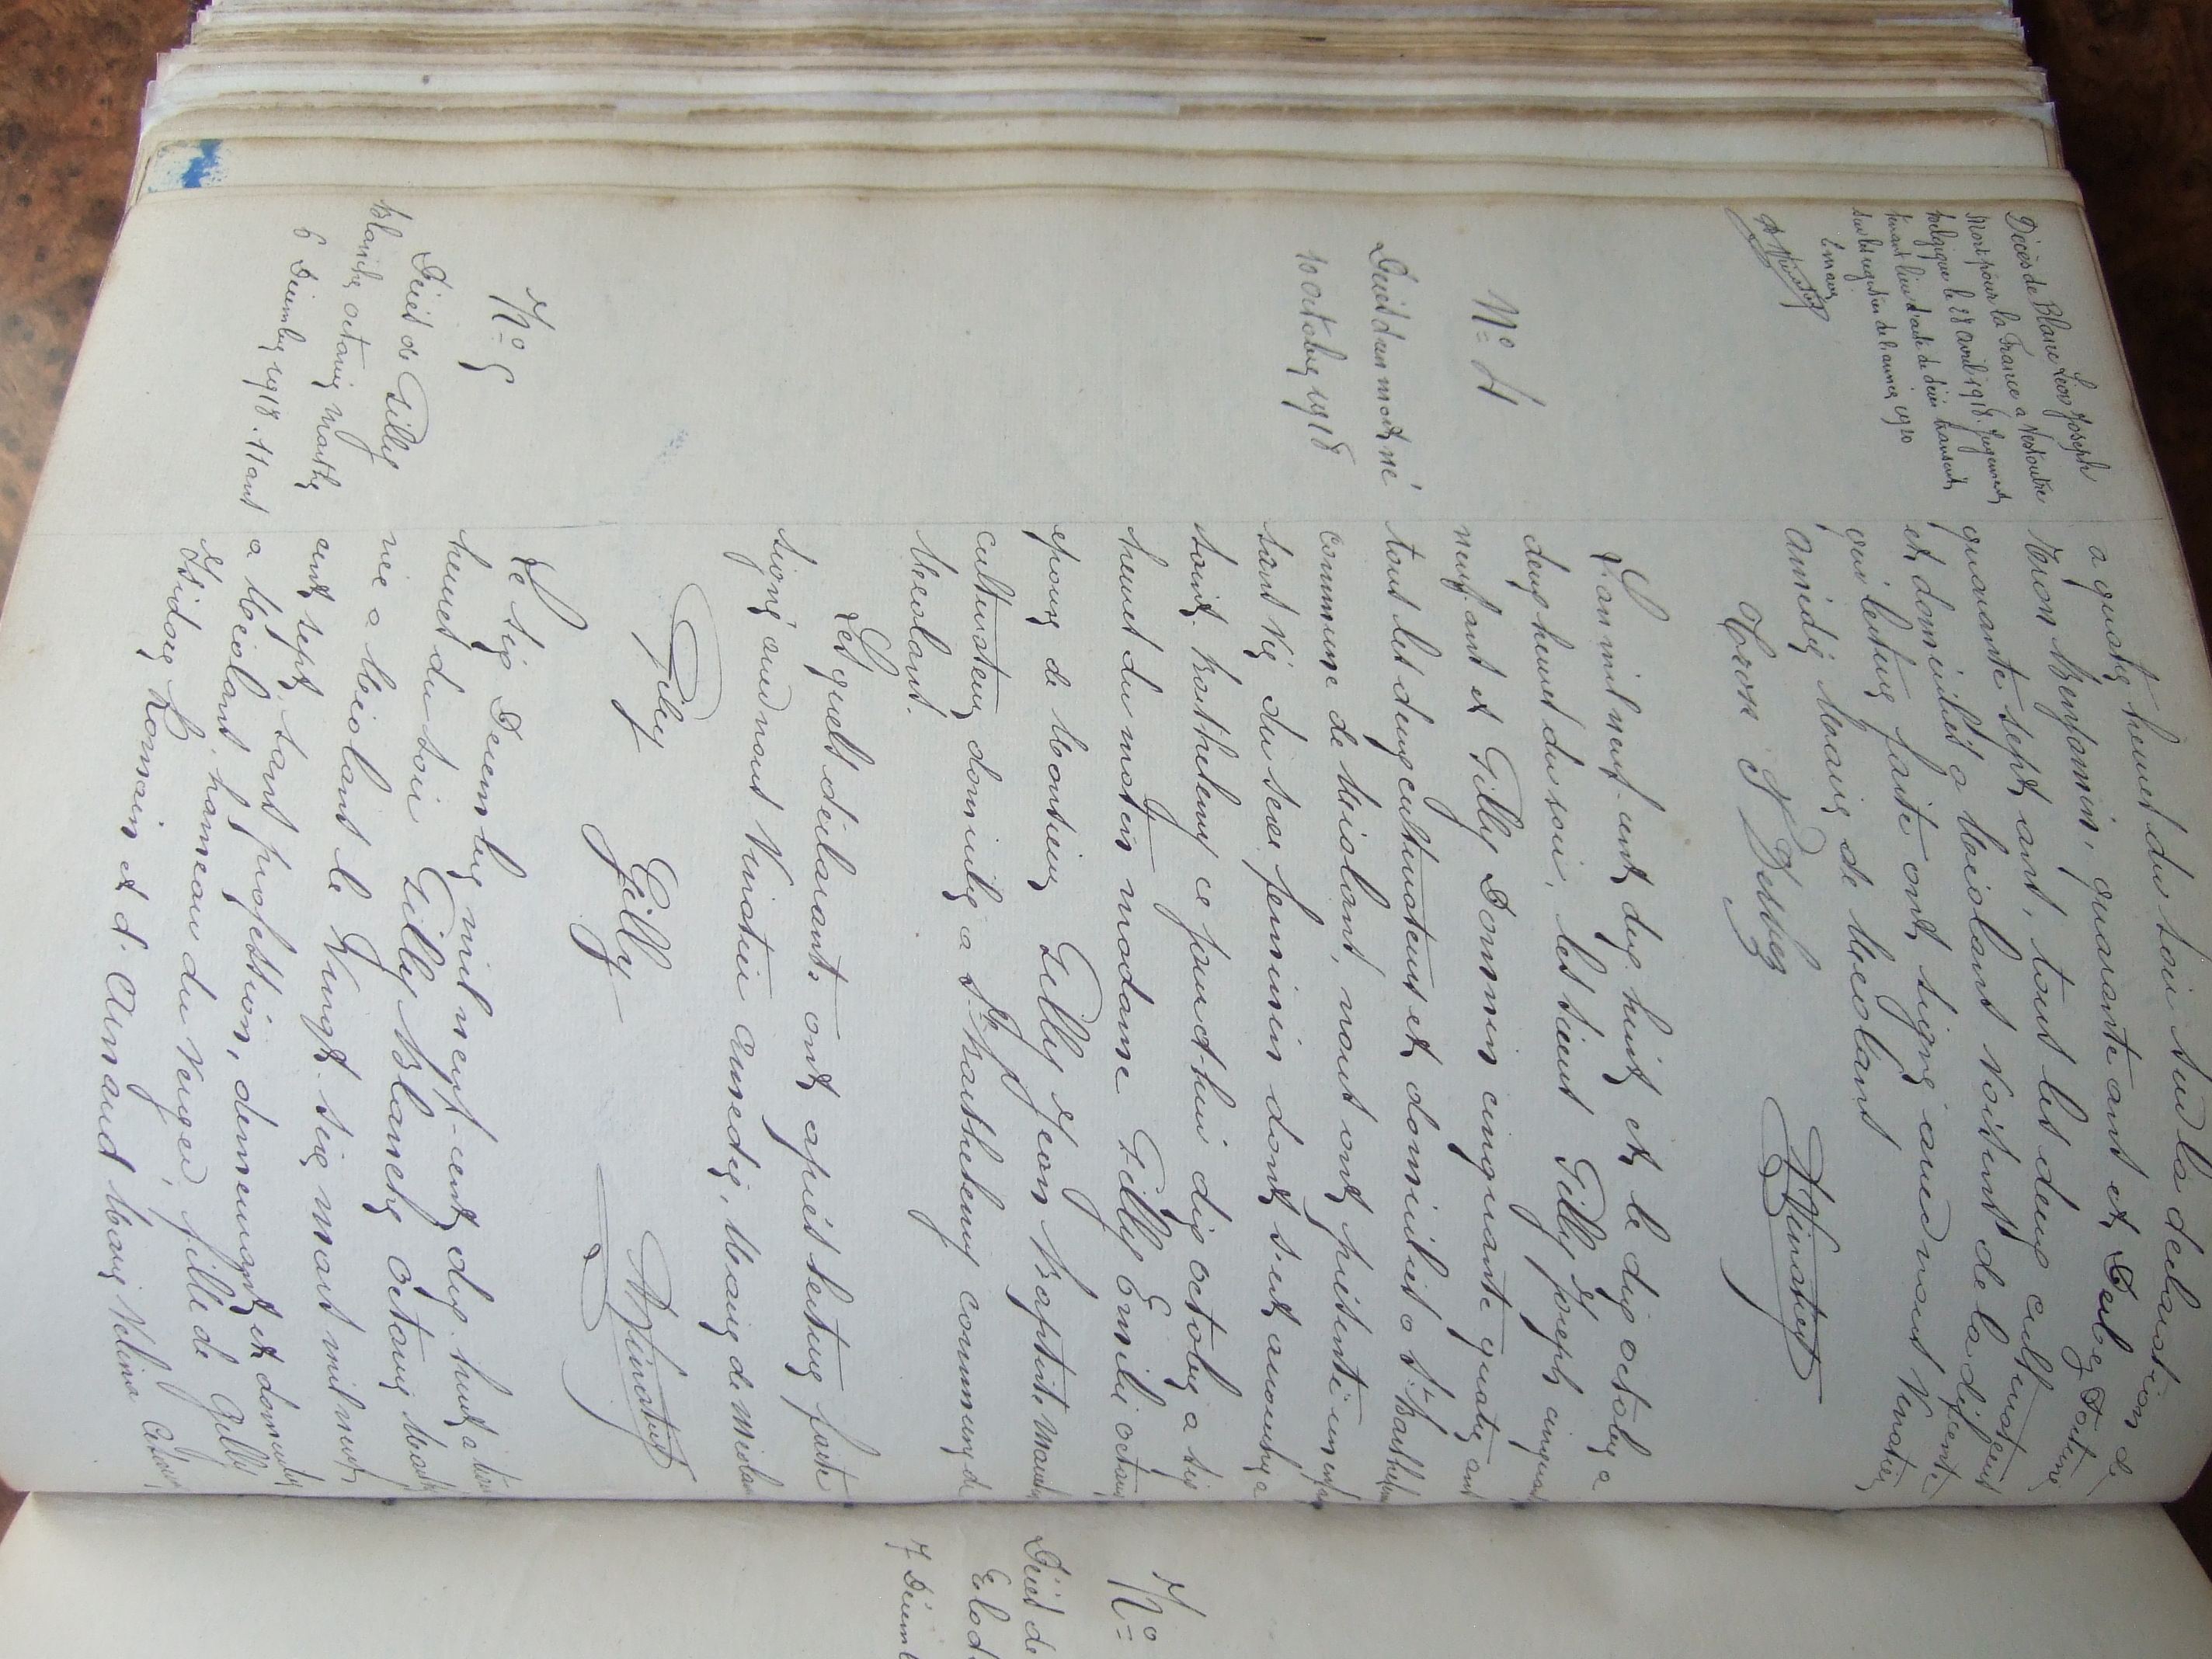 Décès de Blanc Léon Joseph
Mort pour la France a
Belgique le 28 avril 1918. Jugement
tenant lieu d'acte de décès transcrit
sur les registres de l'année 1920
2 mars
a quatre heures du soir sur la déclaration de
Benjamin, quarante ans et
quarante sept ans, tous les deux cultivateurs
et domiciliés a Méolans voisins de la défunte
qui lecture faite ont signé avec nous Vinatier
Amédée Maire de Méolans
AVinatier
N° 4
Décès d'un mort né
10 Octobre 1918
L'an mil neuf-cent dix huit et le dix octobre a
deux heures du soir, les sieurs Gilly Joseph cinquante
neuf ans et Gilly Donnin cinquante quatre ans
tous les deux cultivateurs et domiciliés a St Barthélemy
commune de Méolans, nous ont présenté un enfant
sans vie du sexe féminin dont s'est accouchée a
Saint Barthélemy ce jourd'hui dix octobre a six
heures du matin madame Gilly Emilie octavie
épouse de Monsieur Gilly Jean Baptiste Marius
cultivateur domicilié a St Barthélemy commune de
Méolans.
Lesquels déclarants ont après lecture faite
signé avec nous Vinatier Amédée, Maire de Méolans
Gilly Gilly AVinatier
N° 5
Décès de Gilly
Blanche octavie Marthe
6 Décembre 1918. 11 ans
Le six Décembre mil neuf-cent dix-huit a trois
heures du soir Gilly Blanche octavie Marthe
née a Méolans le Vingt-six mars mil neuf
cent sept, sans profession, demeurant et domiciliée
a Méolans, hameau du Verger, fille de Gilly
Isidore Romain et d'Arnaud Marie
N°
Décès de
Elod
7 Décemb